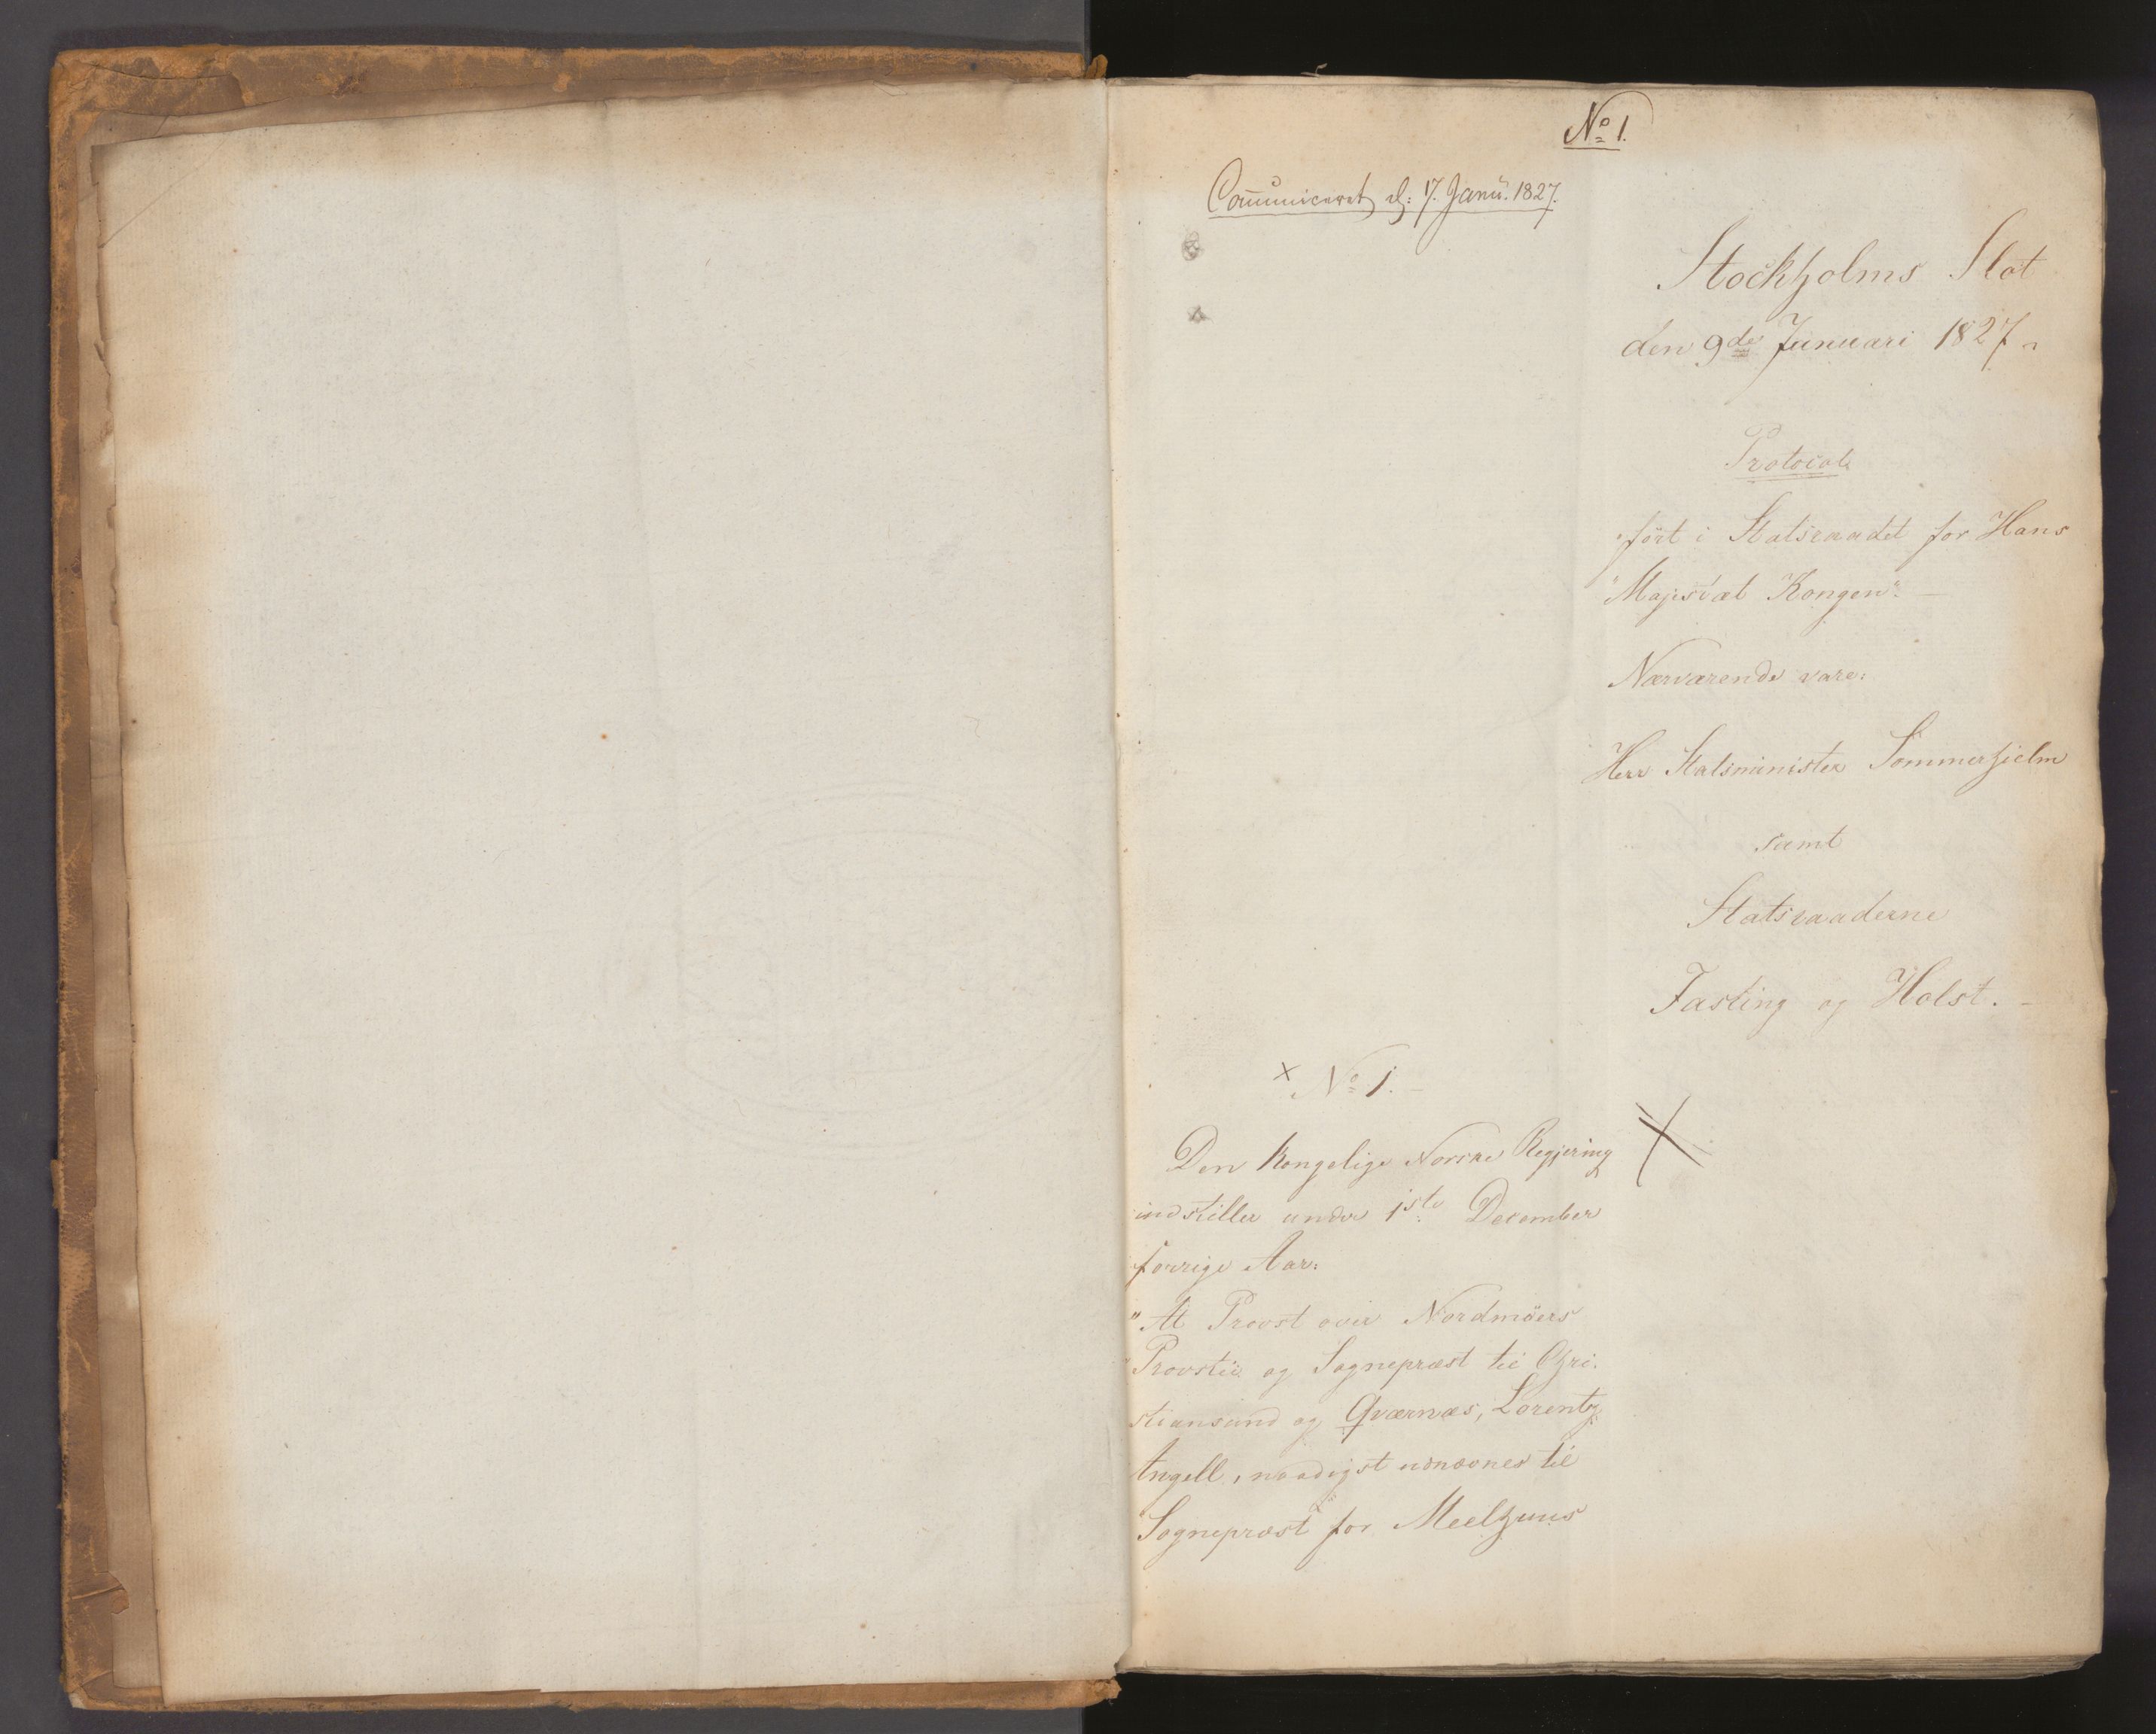 No 1.
Communiceret d: 17. Janu. 1827.
Stockholms Slot
den 9de Januari 1827
Protocol
"ført i Statsraadet for Hans
"Majestæt Kongen". —
Nærværende vare:
Herr Statsminister Sommerhielm
samt
Statsraaderne
Fasting og Holst. —
x No 1. —
Den Kongelige Norske Regjering
indstiller under 1ste December
forrige Aar:
"At Provst over Nordmöers
"Provstie og Sognepræst til Chri-
stiansund og Qværnæs, Lorentz
Angell, naadigst udnævnes til
"Sognepræst for Meelhuus